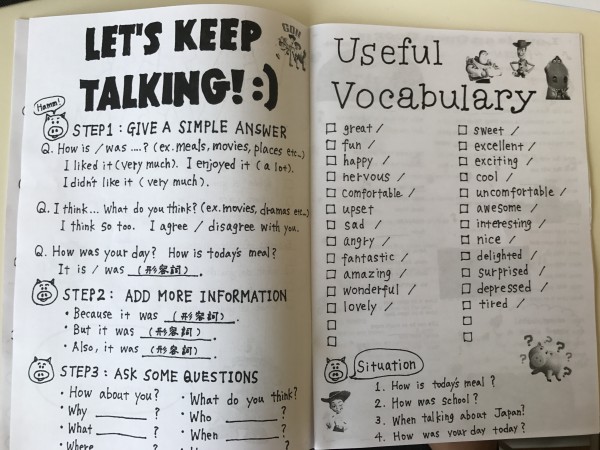 LET'S KEEP
TALKING! :)
GOH
Hamm!
STEP1: GIVE A SIMPLE ANSWER
Q. How is / was ....? (ex. meals, movies, places etc...)
I liked it (very much). I enjoyed it (a lot).
I didn't like it (very much).
Q. I think... What do you think? (ex. movies, dramas etc...)
I think so too. I agree / disagree with you.
Q. How was your day? How is today's meal?
It is / was (形容詞).
STEP2: ADD MORE INFORMATION
・Because it was (形容詞).
・But it was (形容詞).
・Also, it was (形容詞).
STEP3: ASK SOME QUESTIONS
・How about you? ・What do you think?
・Why ______? ・Who ______?
・What ______? ・When ______?
・Where
Useful
Vocabulary
□ great /
□ fun /
□ happy /
□ nervous /
□ comfortable /
□ upset
□ sad /
□ angry /
□ fantastic /
□ amazing /
□ wonderful /
□ lovely /
□
□
□ sweet /
□ excellent /
□ exciting /
□ cool /
□ uncomfortable /
□ awesome /
□ interesting /
□ nice /
□ delighted /
□ surprised /
□ depressed /
□ tired /
□
□
Situation
? ? ? ?
1. How is today's meal?
2. How was school?
3. When talking about Japan?
4. How was your day today?